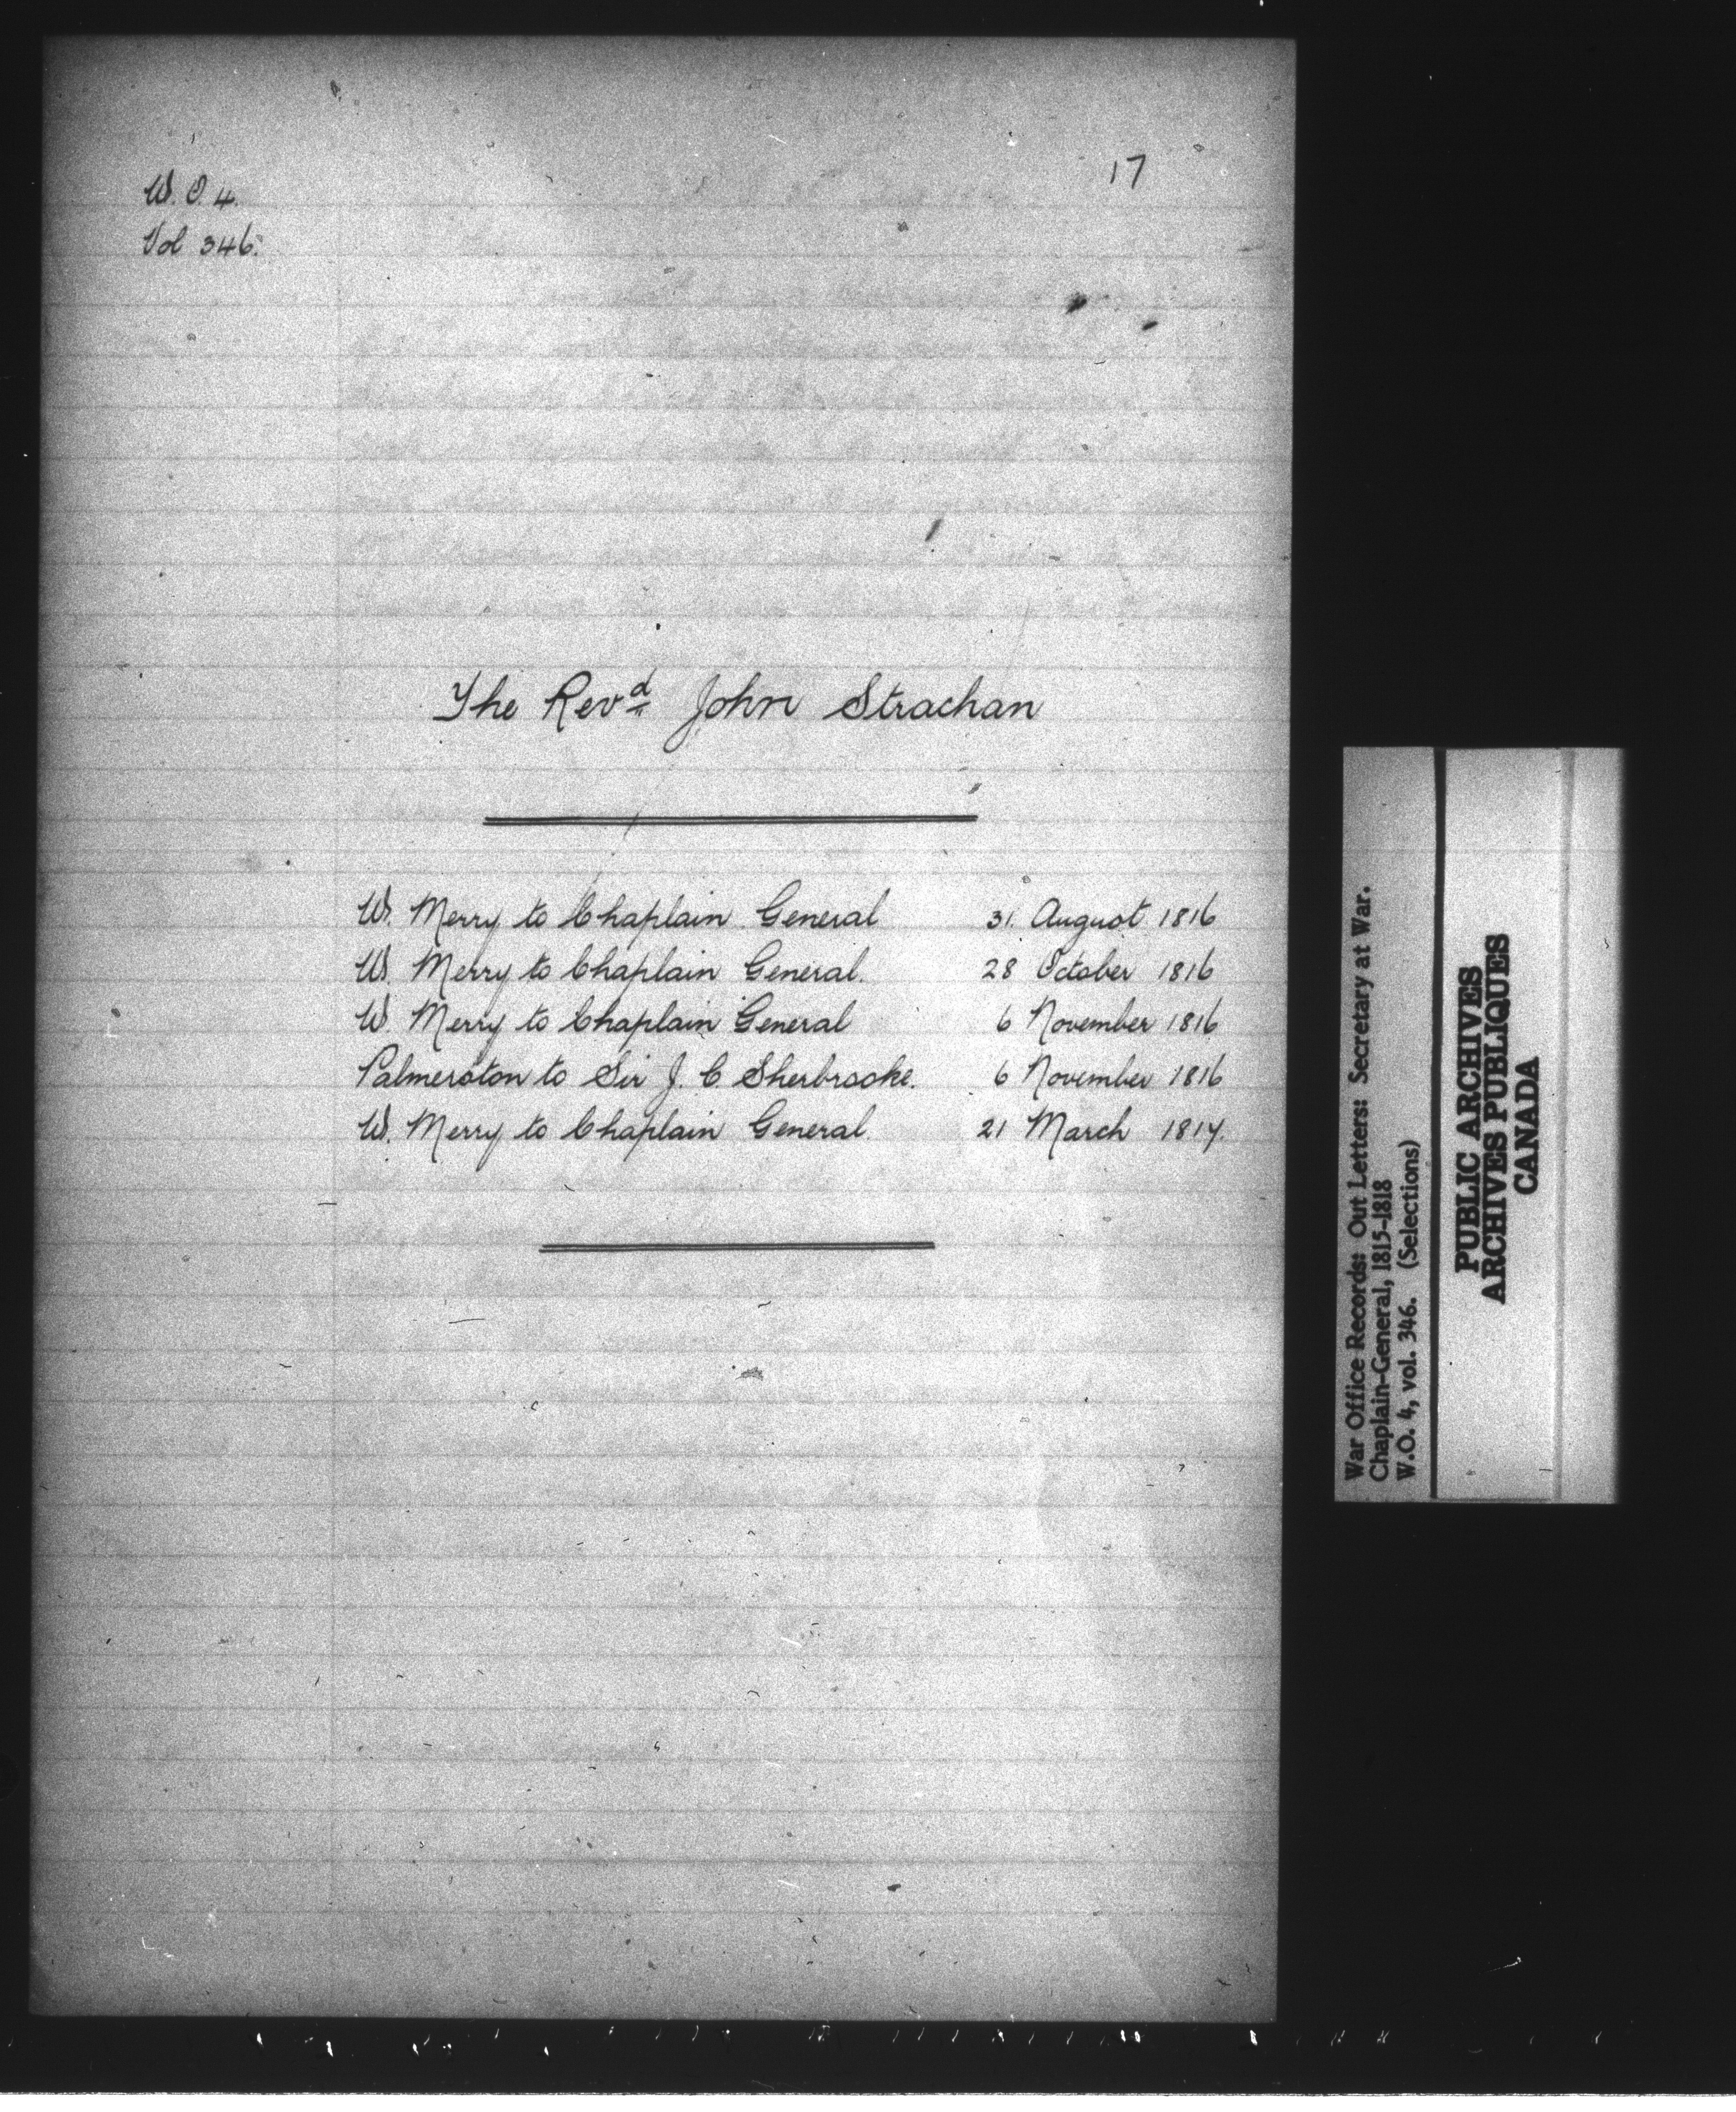 W. O. 4.
Vol 346.
17
The Revd John Strachan
W. Merry to Chaplain General 31 August 1816
W. Merry to Chaplain General. 28 October 1816
W. Merry to Chaplain General 6 November 1816
Palmerston to Sir J. C. Sherbrooke. 6 November 1816
W. Merry to Chaplain General. 21 March 1817.
War Office Records: Out Letters: Secretary at War.
Chaplain-General, 1815-1818
W.O. 4, vol. 346. (Selections)
PUBLIC ARCHIVES
ARCHIVES PUBLIQUES
CANADA